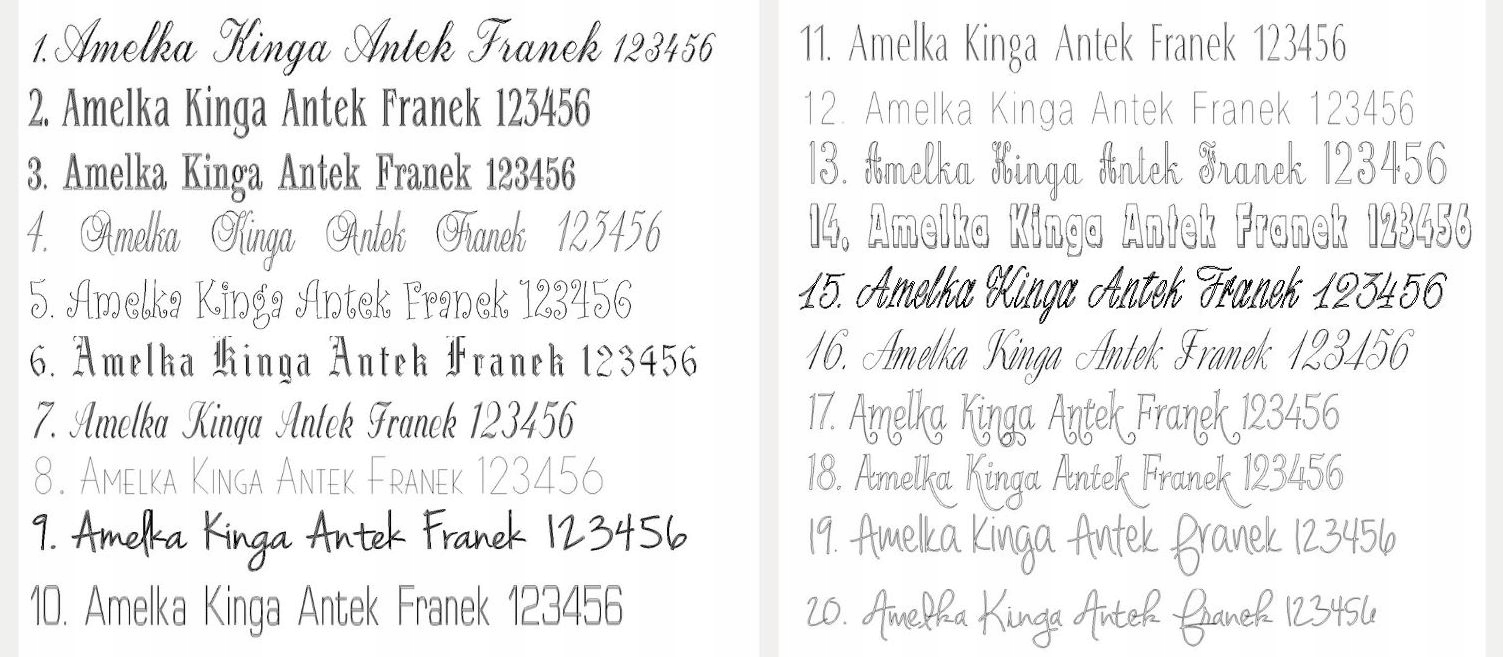 1. Amelka Kinga Antek Franek 123456
2. Amelka Kinga Antek Franek 123456
3. Amelka Kinga Antek Franek 123456
4. Amelka Kinga Antek Franek 123456
5. Amelka Kinga Antek Franek 123456
6. Amelka Kinga Antek Franek 123456
7. Amelka Kinga Antek Franek 123456
8. AMELKA KINGA ANTEK FRANEK 123456
9. Amelka Kinga Antek Franek 123456
10. Amelka Kinga Antek Franek 123456
11. Amelka Kinga Antek Franek 123456
12. Amelka Kinga Antek Franek 123456
13. Amelka Kinga Antek Franek 123456
14. Amelka Kinga Antek Franek 123456
15. Amelka Kinga Antek Franek 123456
16. Amelka Kinga Antek Franek 123456
17. Amelka Kinga Antek Franek 123456
18. Amelka Kinga Antek Franek 123456
19. Amelka Kinga Antek Franek 123456
20. Amelka Kinga Antek Franek 123456